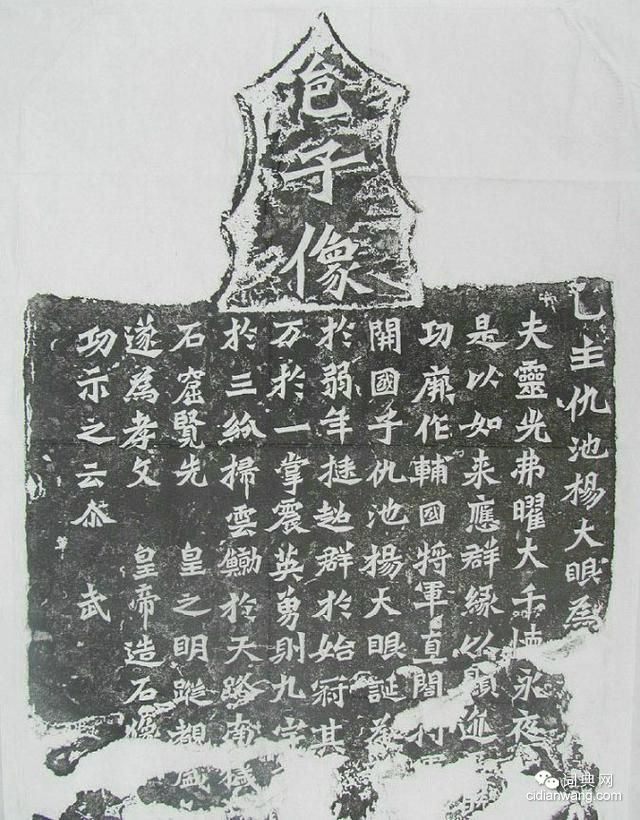 邑子像
邑主仇池楊大眼為
夫靈光弗曜大千懷永夜
是以如来應群緣以顯迹
功厥作輔國將軍直閤將
開國子仇池楊大眼誕承
於弱年挺超群於始冠其
万於一掌震英勇則九宇
於三紛掃雲鯨於天路南穢
石窟覽先 皇之明蹤覩盛
遂為孝文 皇帝造石像
功示之云尒 武
词典网
cidianwang.com